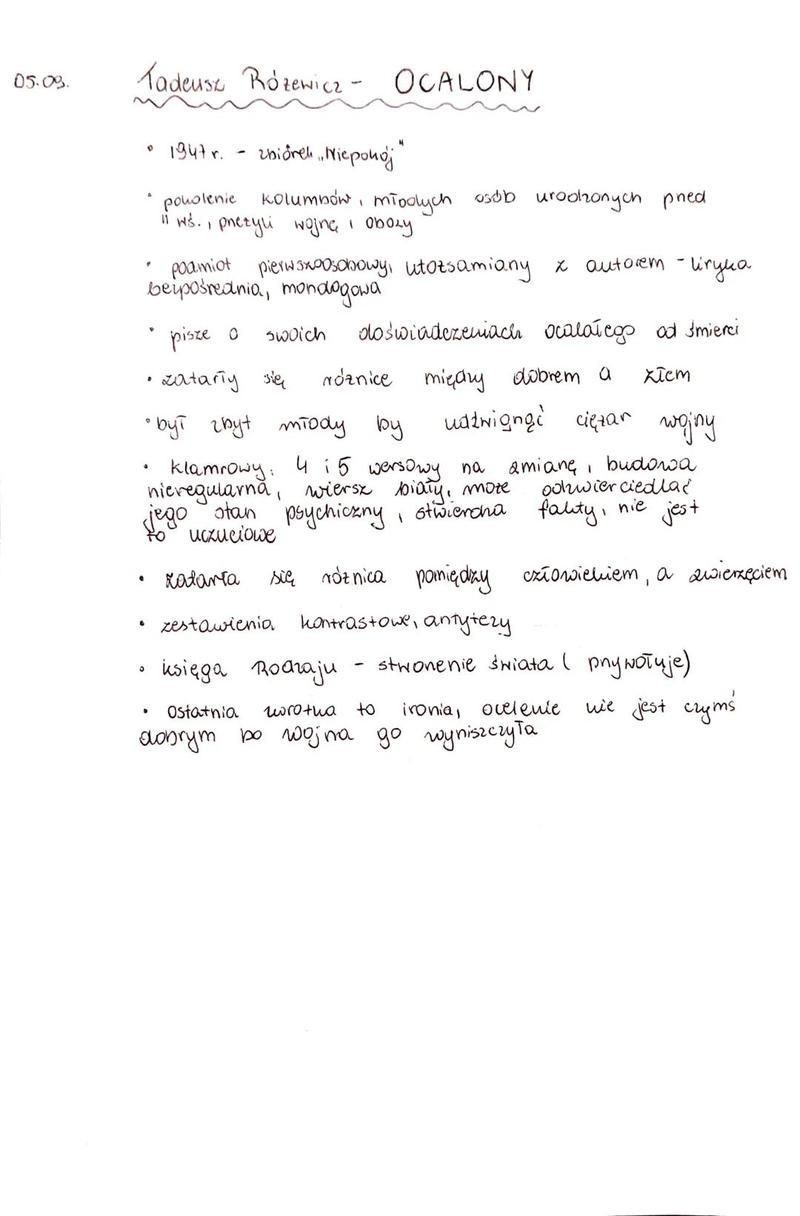 05.09. Tadeusz Różewicz - OCALONY
• 1947 r. - zbiorek „Niepokój"
• pokolenie kolumbów, młodych osób urodzonych przed
II wś., przeżyli wojnę i obozy
• podmiot pierwszoosobowy, utożsamiany z autorem - liryka
bezpośrednia, monologowa
• pisze o swoich doświadczeniach ocalałego od śmierci
• zatarły się różnice między dobrem a złem
• był zbyt młody by udźwignąć ciężar wojny
• klamrowy, 4 i 5 wersowy na zmianę, budowa
nieregularna, wiersz biały, może odzwierciedlać
jego stan psychiczny, stwierdza fakty, nie jest
to uczuciowe
• zatarła się różnica pomiędzy człowiekiem, a zwierzęciem
• zestawienia kontrastowe, antytezy
• księga Rodzaju - stworzenie świata (przywołuje)
• Ostatnia zwrotka to ironia, ocelenie nie jest czymś
dobrym bo wojna go wyniszczyła